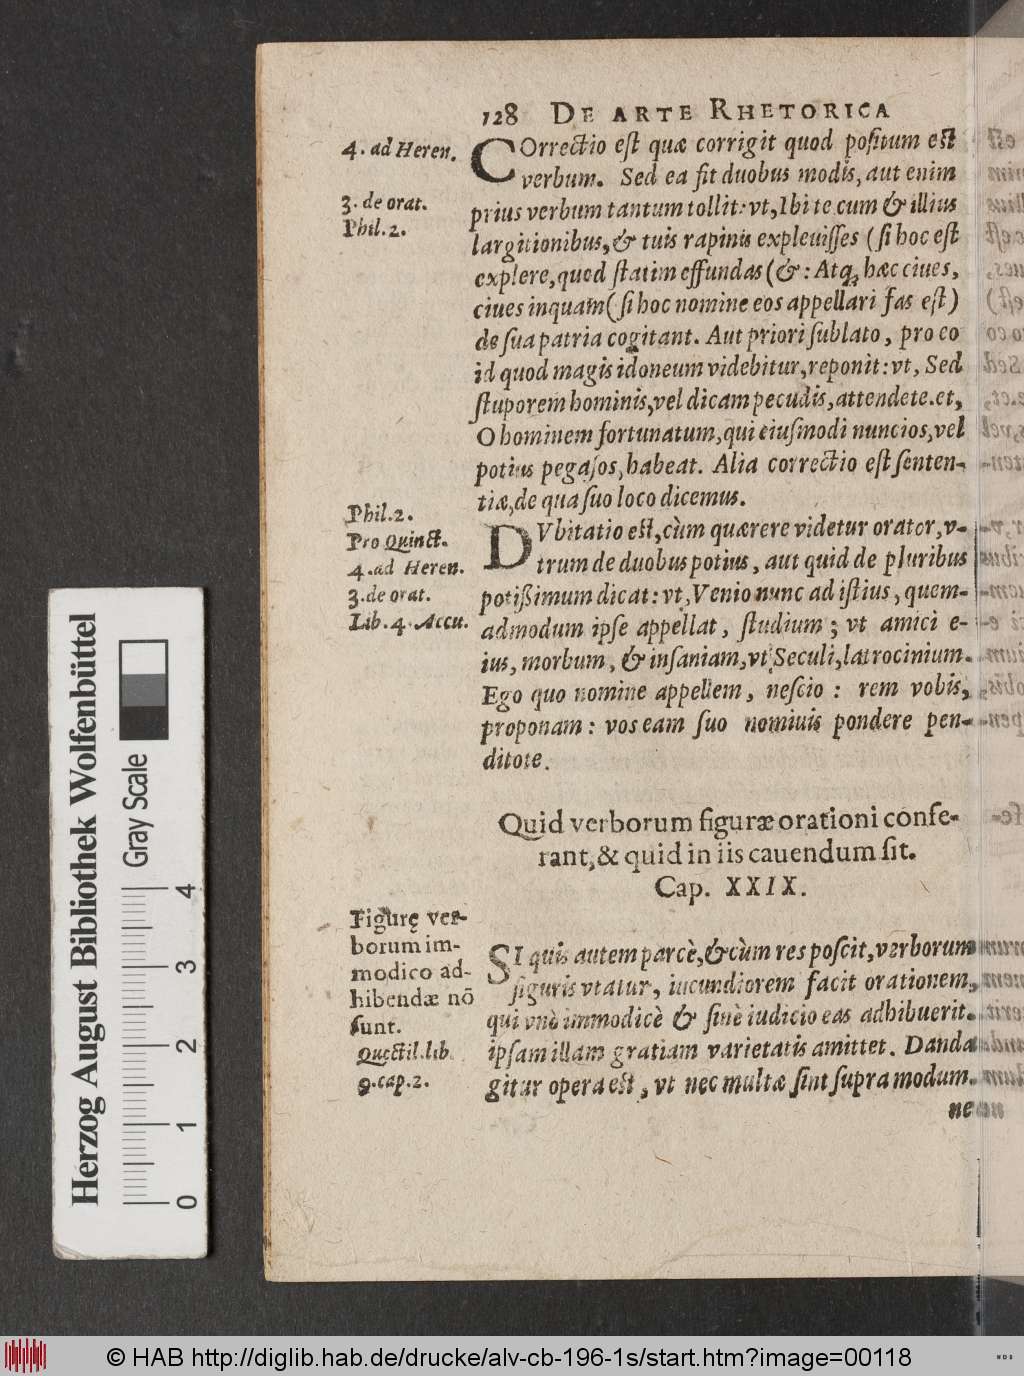 128 DE ARTE RHETORICA
4. ad Heren.
3. de orat.
Phil. 2.
COrrectio est quæ corrigit quod positum est
verbum. Sed ea fit duobus modis, aut enim
prius verbum tantum tollit: vt, Ibi te cum & illius
largitionibus, & tuis rapinis expleuisses (si hoc est
explere, quod statim effundas (&: Atq; hæc ciues,
ciues inquam (si hoc nomine eos appellari fas est)
de sua patria cogitant. Aut priori sublato, pro eo
id quod magis idoneum videbitur, reponit: vt, Sed
stuporem hominis, vel dicam pecudis, attendete. et,
O hominem fortunatum, qui eiusmodi nuncios, vel
potius pegasos, habeat. Alia correctio est senten-
tiæ, de qua suo loco dicemus.
Phil. 2.
Pro Quinct.
4. ad Heren.
3. de orat.
Lib. 4. Accu.
DVbitatio est, cùm quærere videtur orator, v-
trum de duobus potius, aut quid de pluribus
potißimum dicat: vt, Venio nunc ad istius, quem-
admodum ipse appellat, studium; vt amici e-
ius, morbum, & insaniam, vt Seculi, latrocinium.
Ego quo nomine appellem, nescio: rem vobis,
proponam: vos eam suo nomiuis pondere pen-
ditote.
Quid verborum figuræ orationi confe-
rant, & quid in iis cauendum sit.
Cap. XXIX.
Figurę ver-
borum im-
modico ad-
hibendæ nō
sunt.
Quęctil. lib.
9. cap. 2.
SI quis autem parcè, & cùm res poscit, verborum
figuris vtatur, iucundiorem facit orationem,
qui vnò immodicè & sinè iudicio eas adhibuerit.
ipsam illam gratiam varietatis amittet. Danda
gitur opera est, vt nec multæ sint supra modum.
ne
Herzog August Bibliothek Wolfenbüttel
Gray Scale
0 1 2 3 4
© HAB http://diglib.hab.de/drucke/alv-cb-196-1s/start.htm?image=00118